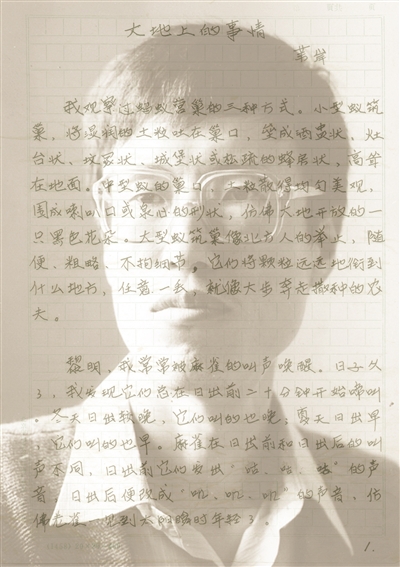 大地上的事情
苇岸
我观察过蚂蚁营巢的三种方式。小型蚁筑
巢，将湿润的土粒吐在巢口，垒成酒盅状、灶
台状、坟冢状、城堡状或松疏的蜂房状，高耸
在地面。中型蚁的巢口，土粒散得均匀美观，
围成喇叭口或泉心的形状，仿佛大地开放的一
只黑色花朵。大型蚁筑巢像北方人的举止，随
便、粗略、不拘细节，它们将颗粒远远地衔到
什么地方，任意一丢，就像大步奔走撒种的农
夫。
黎明，我常常被麻雀的叫声唤醒。日子久
了，我发现它们总在日出前二十分钟开始啼叫
。冬天日出较晚，它们叫的也晚；夏天日出早
，它们叫的也早。麻雀在日出前和日出后的叫
声不同，日出前它们发出“咕、咕、咕”的声
音，日出后便改成“叽、叽、叽”的声音，仿
佛老雀，见到太阳瞬时年轻了。
1.